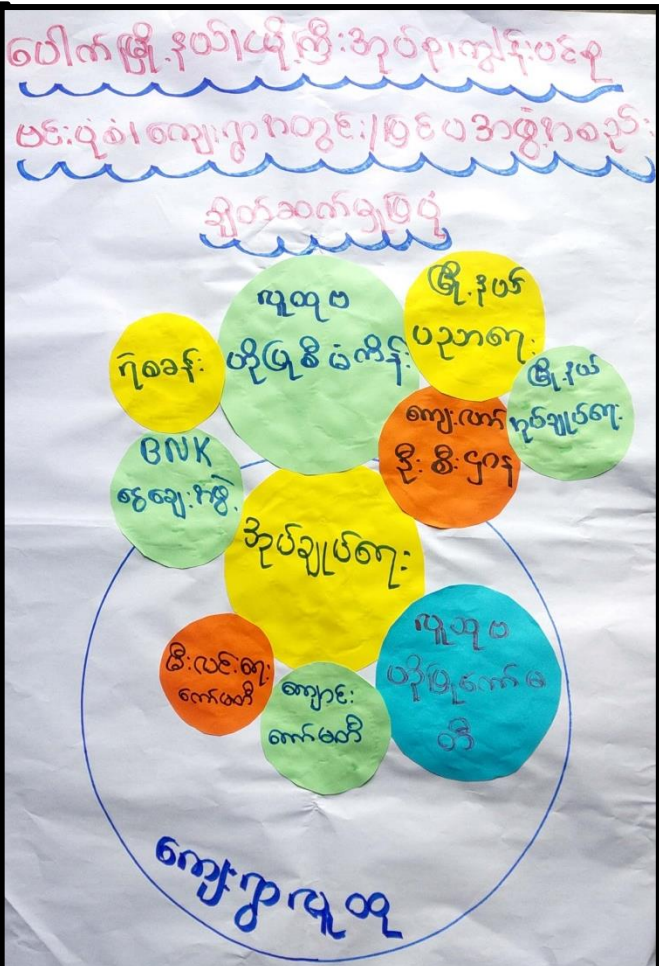 ပေါက်မြို့နယ်၊ ယို့ကြီးအုပ်စု၊ ကျွန်းပင်စု
ကျေးရွာအတွင်း/ပြင်ပအဖွဲ့အစည်း
ချိတ်ဆက်မှုပြပုံ
လူထုဗ
ဟိုပြုစီမံကိန်း
မြို့နယ်
ပညာရေး
ရဲစခန်း
မြို့နယ်
အုပ်ချုပ်ရေး
ကျေးလက်
ဦးစီးဌာန
BNK
ငွေချေးအဖွဲ့
အုပ်ချုပ်ရေး
မီးလင်းရေး
ကော်မတီ
ကျောင်း
ကော်မတီ
လူထုဗ
ဟိုပြုကော်မ
တီ
ကျေးရွာလူထု